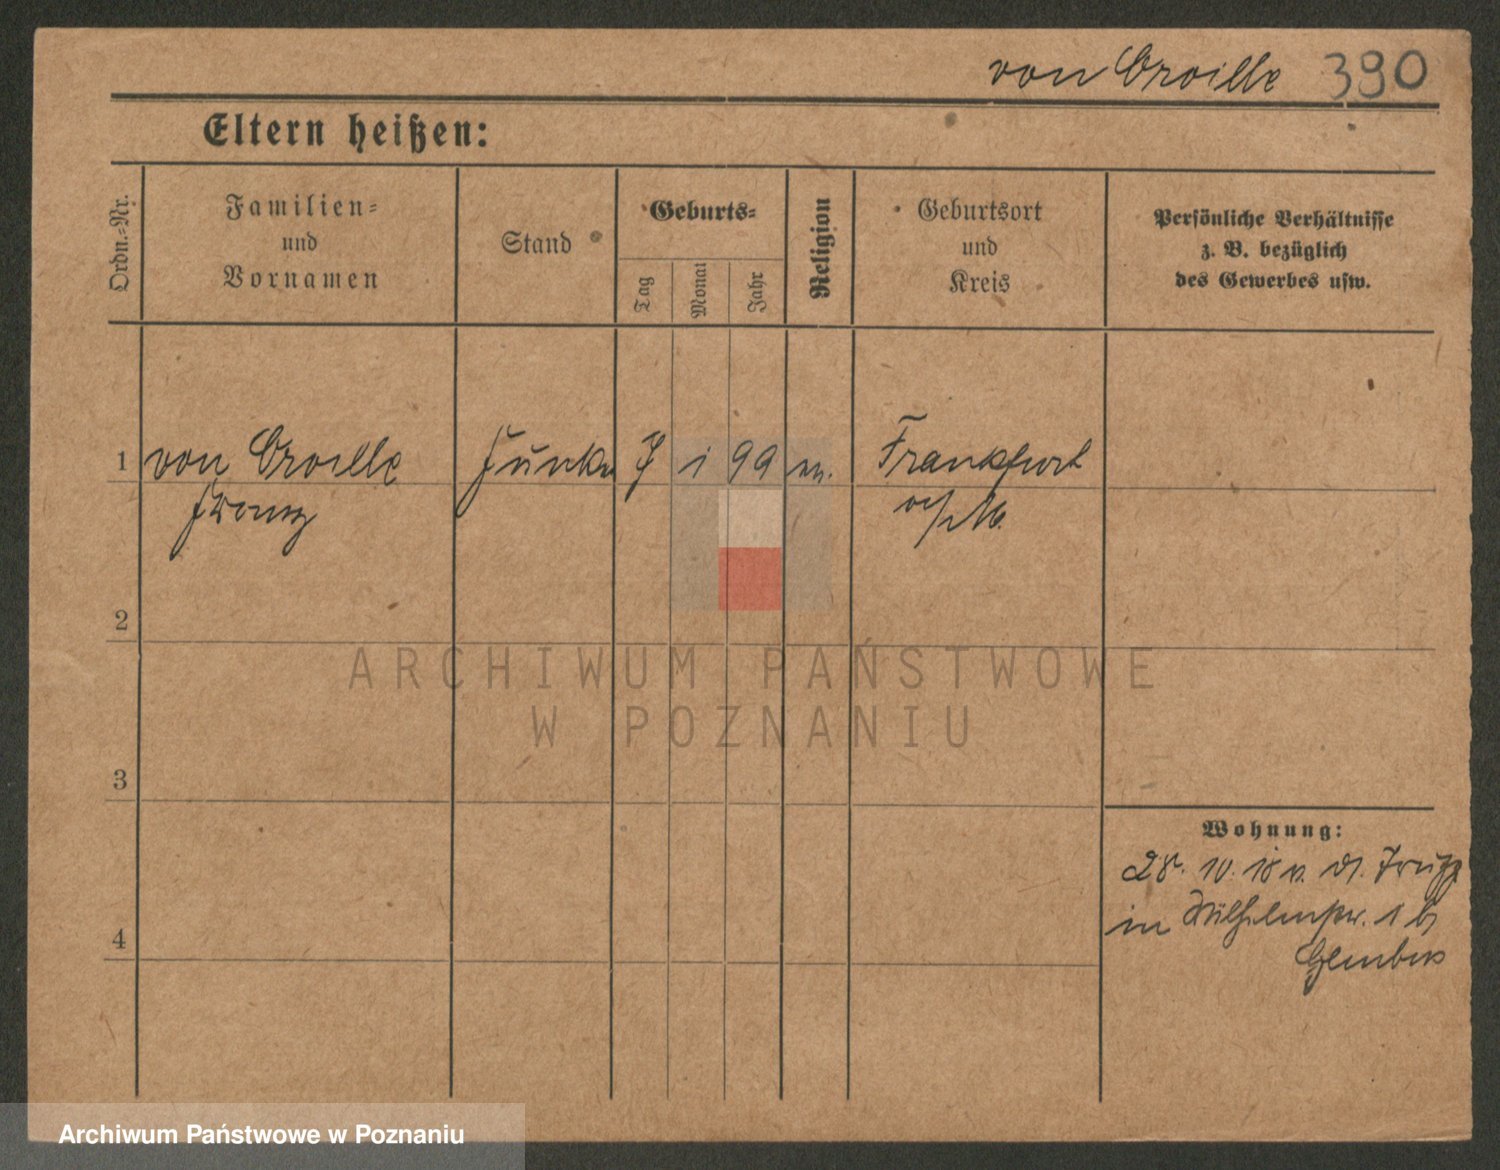 von Croille 390
Eltern heißen:
Ordn.-Nr.
Familien-
und
Vornamen
Stand
Geburts-
Tag
Monat
Jahr
Religion
Geburtsort
und
Kreis
Persönliche Verhältnisse
z. B. bezüglich
des Gewerbes usw.
1 von Croille Junker 7 1 99 Frankfurt
Franz a/M.
2
3
4
Wohnung:
28. 10. 18 v.
in Wilhelmstr. 1 b
ARCHIWUM PAŃSTWOWE
W POZNANIU
Archiwum Państwowe w Poznaniu